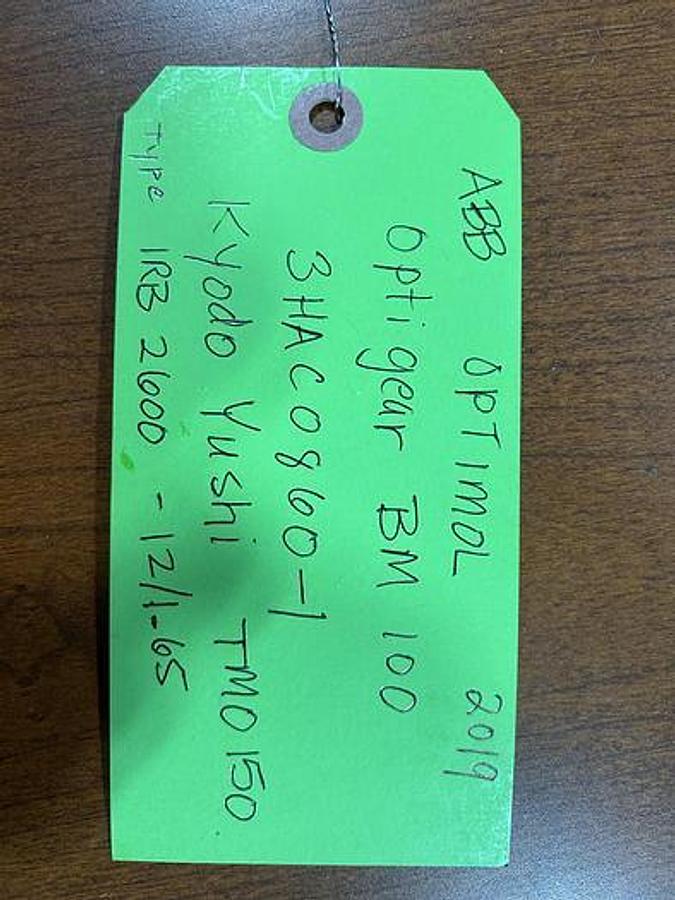 ABB OPTIMOL 2019
Optigear BM 100
3HAC0860-1
Kyodo Yushi TMO 150
Type IRB 2600 - 12/1.65